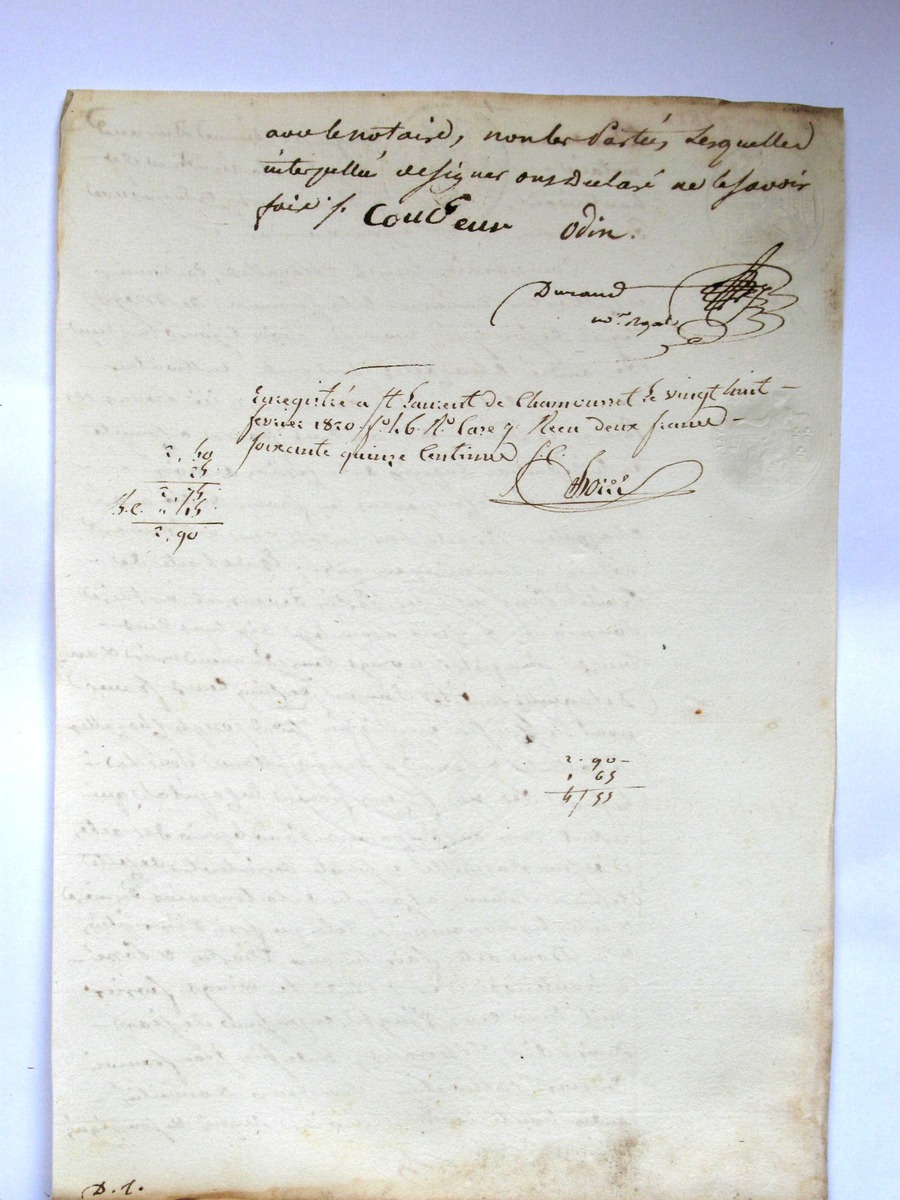 avec le notaire, non les Parties, Lesquelles
interpellées de signer ont declaré ne le savoir
faire /.
Couqeur Odin.
Durand
not. Royal
Enregistré a St Laurent de Chamousset Le vingt huit
fevrier 1820 fo 46 Ro Case 7. Reçu deux francs
soixante quinze Centimes S.C.
2, 50
25
2, 75
S.C. " 15
2, 90
2. 90
1 65
4/55
D. 1.